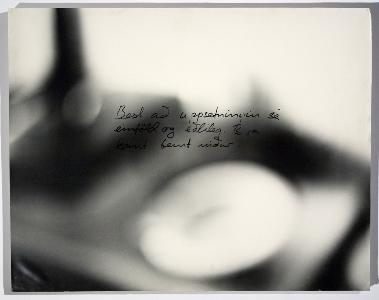 Best að uppsetningin sé
einföld og eðlileg. Þ.e.
beint niður